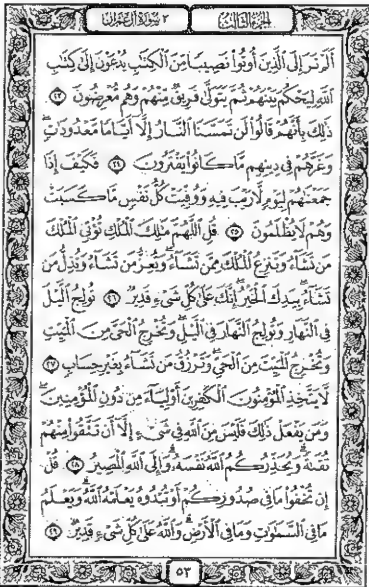 الجزء الثالث ٣ سورة آل عمران
أَلَمْ تَرَ إِلَى الَّذِينَ أُوتُوا نَصِيبًا مِّنَ الْكِتَٰبِ يُدْعَوْنَ إِلَىٰ كِتَٰبِ
اللَّهِ لِيَحْكُمَ بَيْنَهُمْ ثُمَّ يَتَوَلَّىٰ فَرِيقٌ مِّنْهُمْ وَهُم مُّعْرِضُونَ ٢٣
ذَٰلِكَ بِأَنَّهُمْ قَالُوا لَن تَمَسَّنَا النَّارُ إِلَّا أَيَّامًا مَّعْدُودَٰتٍ ۖ
وَغَرَّهُمْ فِي دِينِهِم مَّا كَانُوا يَفْتَرُونَ ٢٤ فَكَيْفَ إِذَا
جَمَعْنَٰهُمْ لِيَوْمٍ لَّا رَيْبَ فِيهِ وَوُفِّيَتْ كُلُّ نَفْسٍ مَّا كَسَبَتْ
وَهُمْ لَا يُظْلَمُونَ ٢٥ قُلِ اللَّهُمَّ مَٰلِكَ الْمُلْكِ تُؤْتِي الْمُلْكَ
مَن تَشَاءُ وَتَنزِعُ الْمُلْكَ مِمَّن تَشَاءُ وَتُعِزُّ مَن تَشَاءُ وَتُذِلُّ مَن
تَشَاءُ ۖ بِيَدِكَ الْخَيْرُ ۖ إِنَّكَ عَلَىٰ كُلِّ شَيْءٍ قَدِيرٌ ٢٦ تُولِجُ اللَّيْلَ
فِي النَّهَارِ وَتُولِجُ النَّهَارَ فِي اللَّيْلِ ۖ وَتُخْرِجُ الْحَيَّ مِنَ الْمَيِّتِ
وَتُخْرِجُ الْمَيِّتَ مِنَ الْحَيِّ ۖ وَتَرْزُقُ مَن تَشَاءُ بِغَيْرِ حِسَابٍ ٢٧
لَّا يَتَّخِذِ الْمُؤْمِنُونَ الْكَٰفِرِينَ أَوْلِيَاءَ مِن دُونِ الْمُؤْمِنِينَ ۖ
وَمَن يَفْعَلْ ذَٰلِكَ فَلَيْسَ مِنَ اللَّهِ فِي شَيْءٍ إِلَّا أَن تَتَّقُوا مِنْهُمْ
تُقَىٰةً ۗ وَيُحَذِّرُكُمُ اللَّهُ نَفْسَهُ ۗ وَإِلَى اللَّهِ الْمَصِيرُ ٢٨ قُلْ
إِن تُخْفُوا مَا فِي صُدُورِكُمْ أَوْ تُبْدُوهُ يَعْلَمْهُ اللَّهُ ۗ وَيَعْلَمُ
مَا فِي السَّمَٰوَٰتِ وَمَا فِي الْأَرْضِ ۗ وَاللَّهُ عَلَىٰ كُلِّ شَيْءٍ قَدِيرٌ ٢٩
٥٣